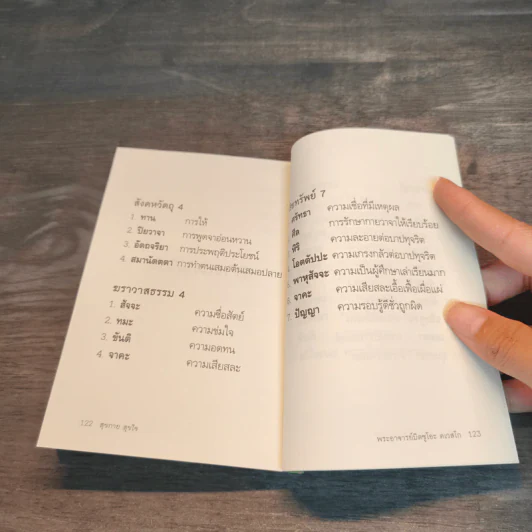 สังคหวัตถุ 4
1. ทาน การให้
2. ปิยวาจา การพูดจาอ่อนหวาน
3. อัตถจริยา การประพฤติประโยชน์
4. สมานัตตตา การทำตนเสมอต้นเสมอปลาย
ฆราวาสธรรม 4
1. สัจจะ ความซื่อสัตย์
2. ทมะ ความข่มใจ
3. ขันติ ความอดทน
4. จาคะ ความเสียสละ
122 สุขกาย สุขใจ
ทรัพย์ 7
ศรัทธา ความเชื่อที่มีเหตุผล
ศีล การรักษากายวาจาให้เรียบร้อย
หิริ ความละอายต่อบาปทุจริต
โอตตัปปะ ความเกรงกลัวต่อบาปทุจริต
พาหุสัจจะ ความเป็นผู้ศึกษาเล่าเรียนมาก
จาคะ ความเสียสละเอื้อเฟื้อเผื่อแผ่
7. ปัญญา ความรอบรู้ดีชั่วถูกผิด
พระอาจารย์มิตซูโอะ คเวสโก 123